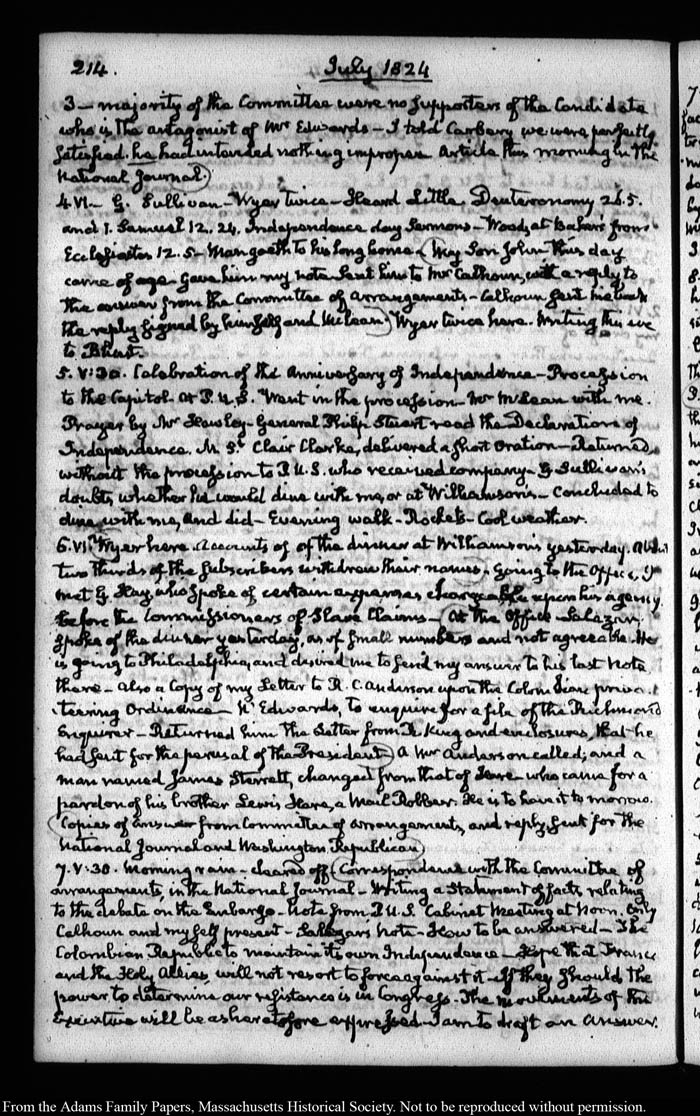 214.
July 1824
3 — majority of the Committee were no supporters of the Candidate
who is the antagonist of Mr Edwards — I told Carbery we were perfectly
satisfied he had intended nothing improper. Article this morning in the
National Journal.)
4. VI. G. Sullivan — Wyer twice — Heard Little Deuteronomy 26.5.
and 1. Samuel 12.24. Independence day Sermons — at Baker's from
Ecclesiastes 12.5. Man goeth to his long home. (My Son John this day
came of age — Gave him my note. Sent him to Mr Calhoun, with a reply to
the answer from the Committee of arrangements — Calhoun sent me back
the reply signed by himself and McLean) Wyer twice here. Writing this eve
to
5. V:30. Celebration of the Anniversary of Independence — Procession
to the Capitol. At P. U. S. Went in the procession — Mr McLean with me.
Prayer by Mr Hawley — General Philip Stuart read the Declaration of
Independence. M. St Clair Clarke, delivered a short oration — Returned
without the procession to P. U. S. who received company — G. Sullivan's
doubts whether he would dine with me, or at Williamson's — Concluded to
dine with me, and did — Evening walk — Rockets — Cool weather.
6. VI. (Wyer here. Accounts of of the dinner at Williamson's yesterday. About
two thirds of the subscribers withdrew their names. Going to the Office, I
met G. Hay, who spoke of certain expenses chargeable upon his agency
before the Commissioners of Slave Claims — (At the Office — Salazar.
Spoke of the dinner yesterday, as of small numbers and not agreeable. He
is going to Philadelphia, and desired me to send my answer to his last Note
there — Also a Copy of my Letter to R. C. Anderson upon the Colombian priva
teering Ordinance — Edwards, to enquire for a file of the Richmond
Enquirer — Returned him the Letter from R. King and enclosures, that he
had sent for the perusal of the President) A Mr Anderson called; and a
man named James Sterrett, changed from that of Hare who came for a
pardon of his brother Lewis Hare, a Mail Robber. He is to have it to morrow.
(Copies of answer from Committee of arrangements, and reply, sent for the
National Journal and Washington Republican)
7. V:30. Morning rain — cleared off (Correspondence with the Committee of
arrangements, in the National Journal — Writing a Statement of facts, relating
to the debate on the Embargo. Note from P. U. S. Cabinet Meeting at Noon. Only
Calhoun and myself present — Salazar's Note — How to be answered — The
Colombian Republic to maintain its own Independence — Hope that France
and the Holy Allies, will not resort to force against it — If they should the
power to determine our resistance is in Congress. The movements of the
Executive will be as heretofore expressed — I am to draft an answer.
From the Adams Family Papers, Massachusetts Historical Society. Not to be reproduced without permission.